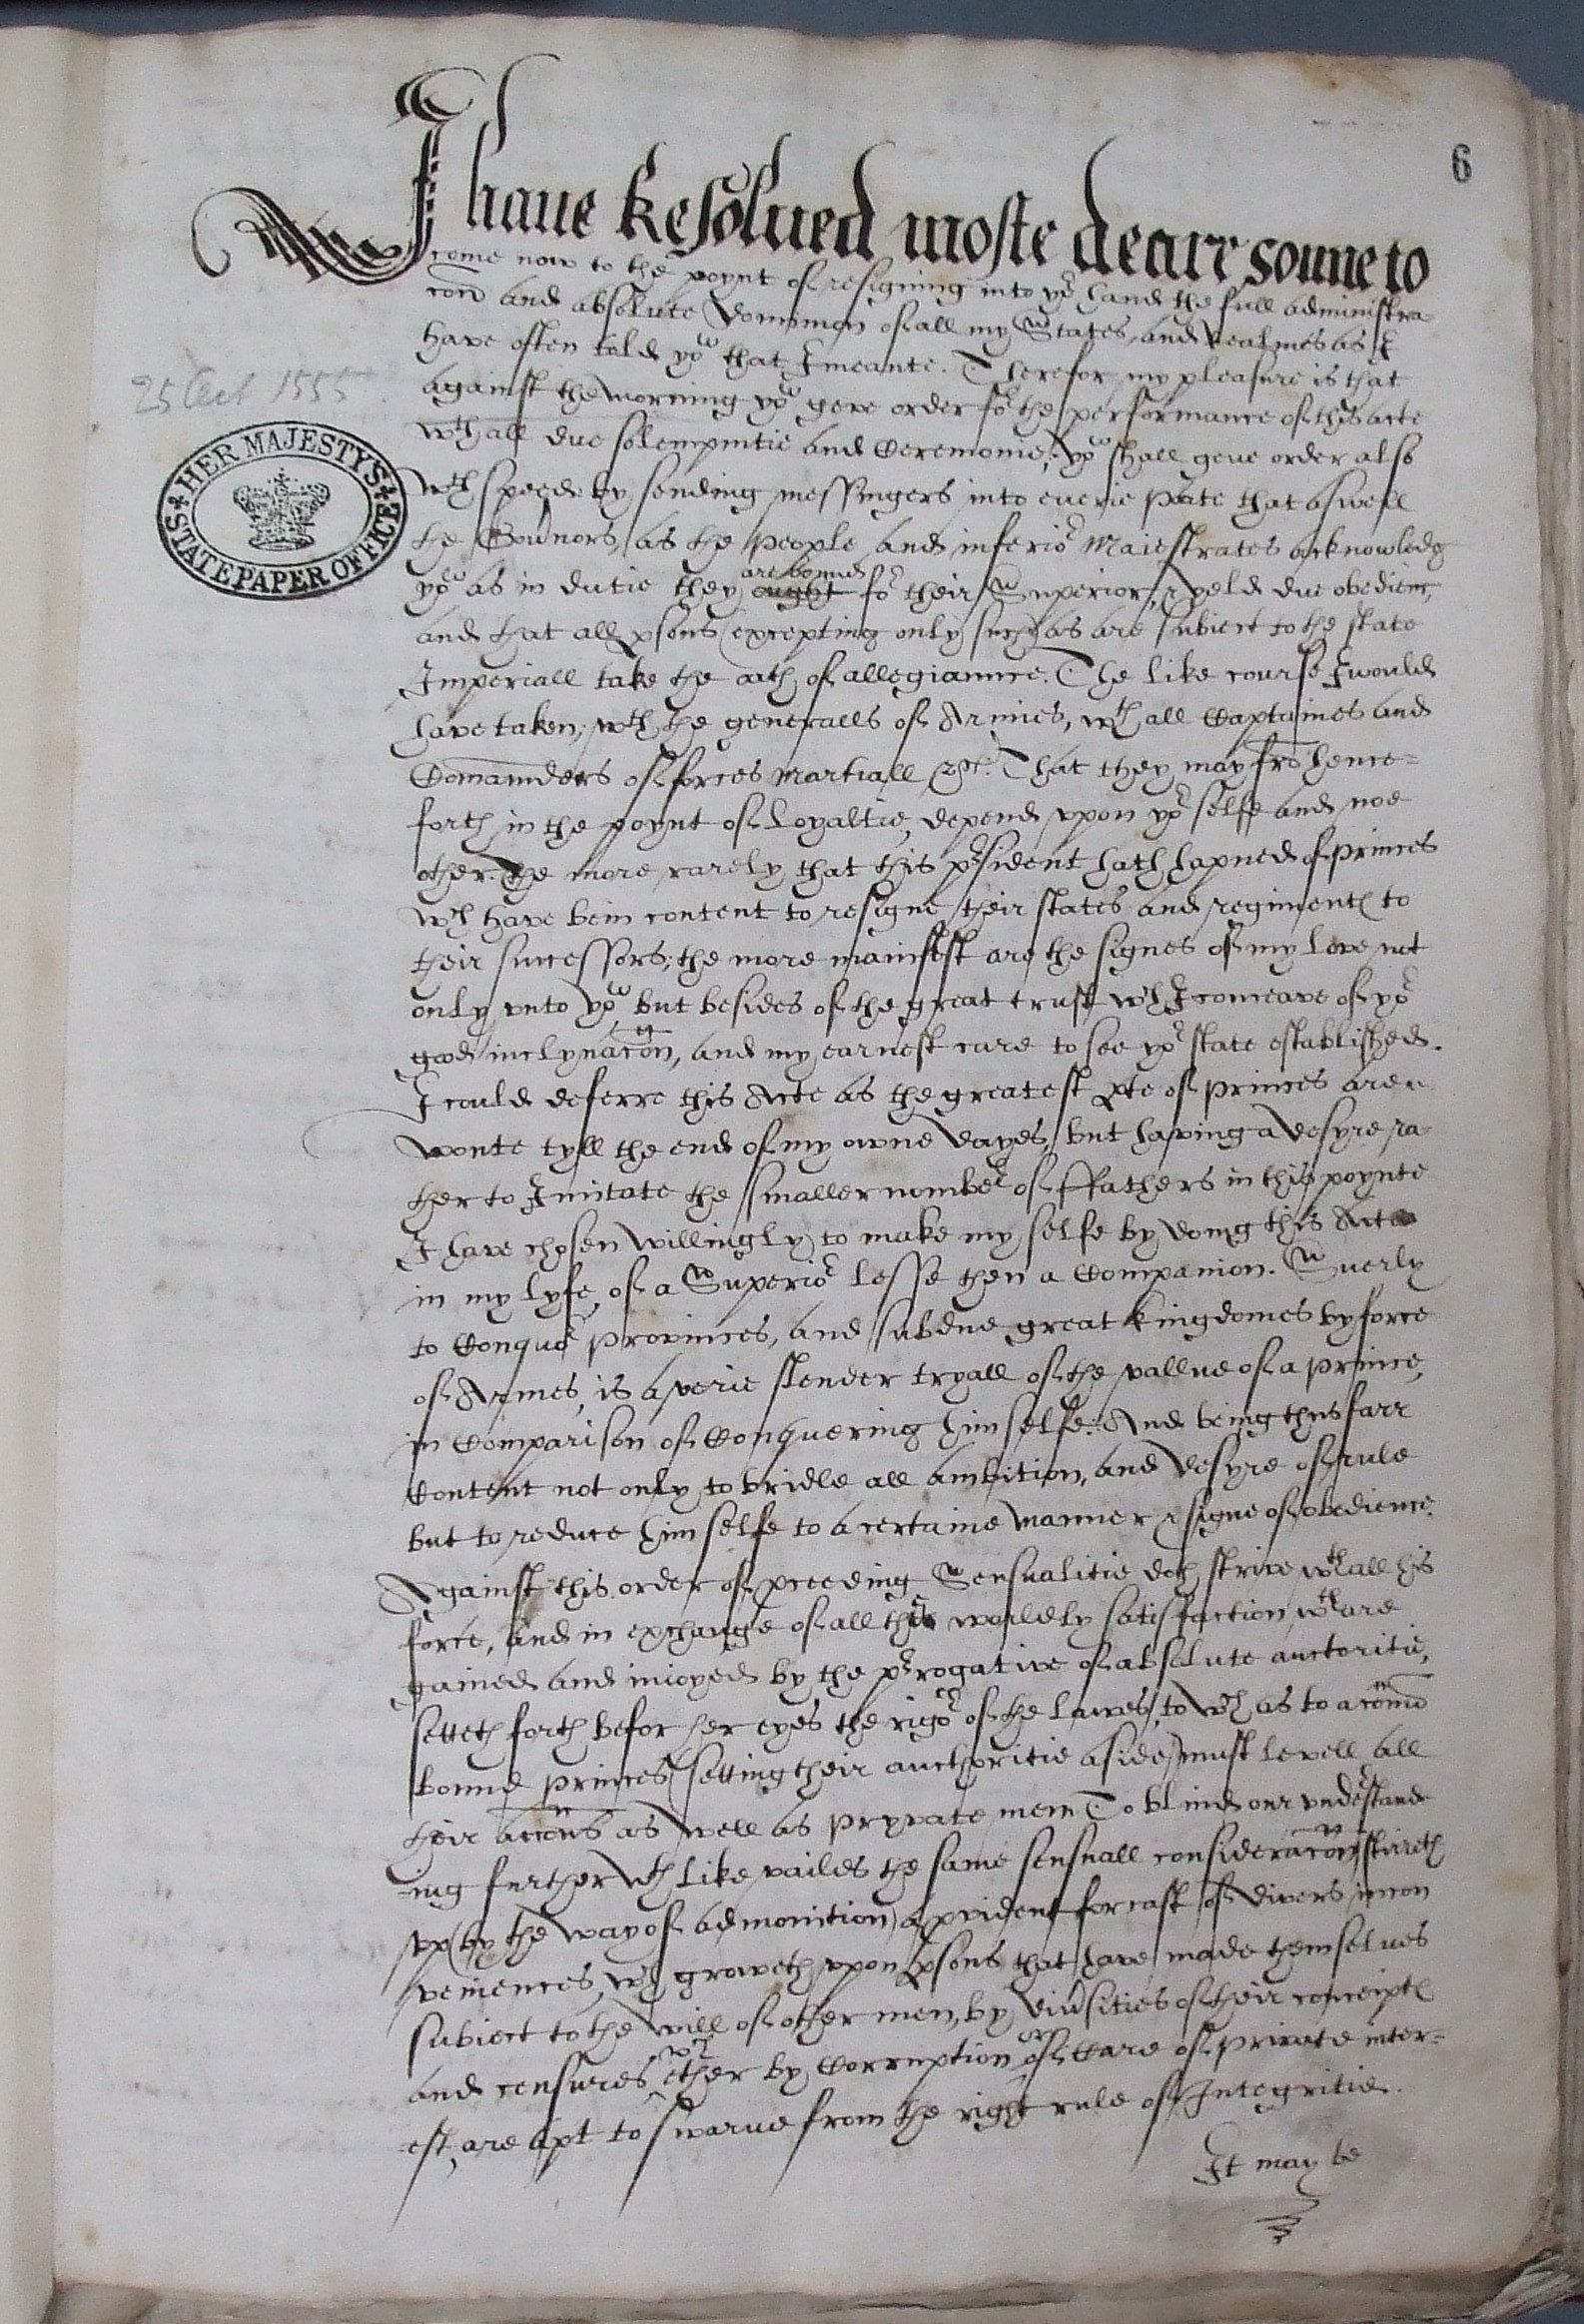 6
I haue Resolued moste deare sonne to
come now to the poynt of resigning into yor hand the full administra-
con and absolute dominion of all my States, and Realmes as I
have often told you that I meante. Therefor my pleasure is that
25 Oct 1555
against the morning you geve order for the performance of this acte
wth all due solempnitie and Ceremonie, you shall geue order also
wth speede by sending messingers into euerie parte that aswell
the Gouernors, as the people and inferior Maiestrates acknowledg
you as in dutie they ought are bound for their Superior, & yeld due obedienc,
and that all psons (excepting only such) as are subiect to the state
Imperiall take the oath of allegiaunce. The like course I would
have taken, wth the generalls of Armies, wth all Captaines and
Comaunders of forces martiall &c. That they may fro hence=
forth in the poynt of Loyaltie, depend vpon yor selfe and noe
other. The more rarely that this president hath hapned of princes
wch have bein content to resigne their states and regiments to
their successors; the more manifest are the signes of my love not
only vnto you but besides of the great trust wch I conceave of yor
good inclynacon, and my earnest care to see yor state established.
I could deferre this Acte as the greatest pte of princes are
wonte tyll the end of my owne dayes, but having a desyre ra-
ther to Imitate the smaller nomber of ffathers in this poynte
I have chosen willingly to make my selfe by doing this Acte
in my lyfe, of a Superior lesse then a Companion. Suerly
to Conquer provinces, and subdue great kingdomes by force
of Armes, is a verie slender tryall of the vallue of a prince,
in Comparison of Conquering him selfe: And being thus farr
Content not only to bridle all ambition, and desyre of rule
but to reduce him selfe to a certaine manner & signe of obedience.
Against this order of proceeding Sensualitie doth strive wth all his
force, and in exchange of all this worldly satisfaction wch are
gained and inioyed by the prerogative of absolute auctoritie,
setteth forth befor her eyes the rigor of the lawes, to wch as to a comon
bounde princes (setting their aucthoritie aside) must levell all
their accons as well as pryvate men. To blind our vnderstand
-ing further wth like vailes the same sensuall consideracon stirreth
vp (by the way of admonition) a provident forcast of divers incon
veniences, wch groweth vpon psons that have made themselves
subiect to the will of other men, by diuersities of their conceipts
and censures, wch ether by Corruption or Care of private inter=
est, are apt to swarue from the right rule of Integritie.
It may be
HER MAJESTY'S
STATE PAPER OFFICE